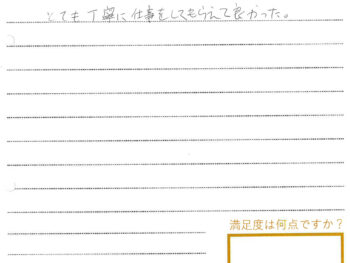 とても丁寧に仕事をしてもらえて良かった。
満足度は何点ですか？